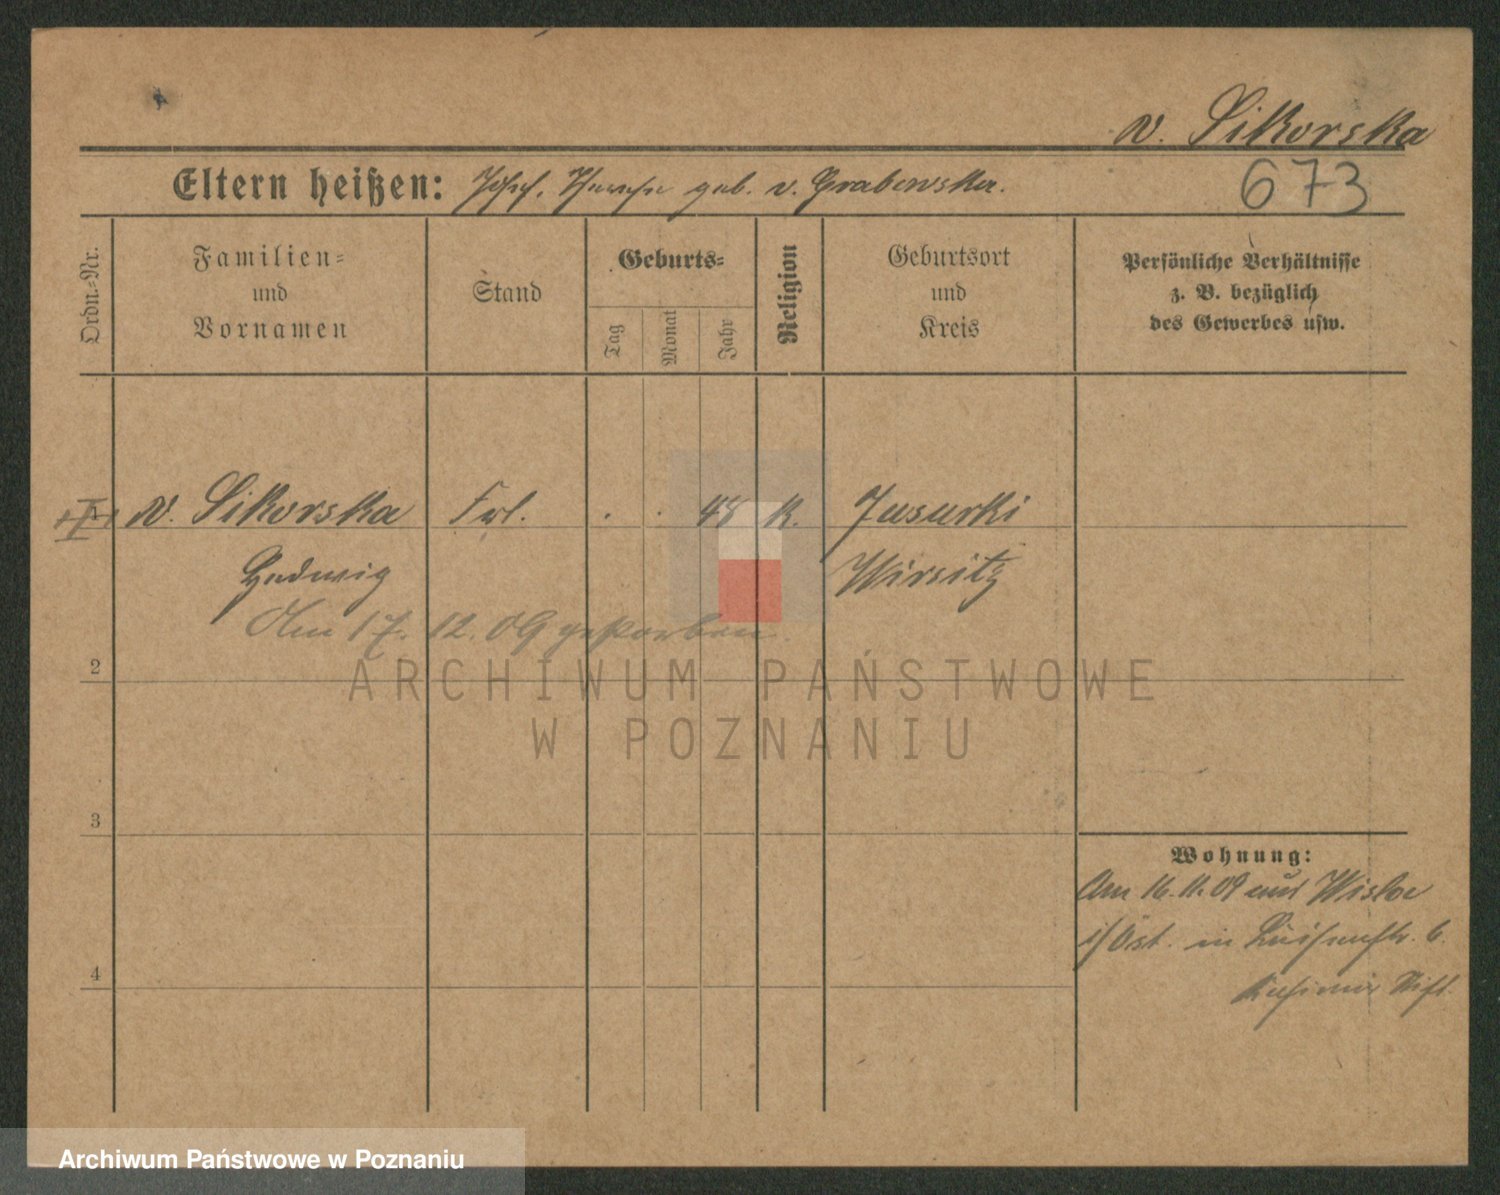 v. Sikorska
Eltern heißen: Josef, geb. v. Grabowska.
673
Ordn.-Nr.
Familien-
und
Vornamen
Stand
Geburts-
Tag
Monat
Jahr
Religion
Geburtsort
und
Kreis
Persönliche Verhältnisse
z. B. bezüglich
des Gewerbes usw.
1 v. Sikorska Frl. . . 48 k.
Hedwig Wirsitz
Am 17. 12. 09 gestorben.
2
3
4
Wohnung:
Am 16.11.09 aus
i/Öst. in Luisenstr. 6.
Stift.
ARCHIWUM PAŃSTWOWE
W POZNANIU
Archiwum Państwowe w Poznaniu